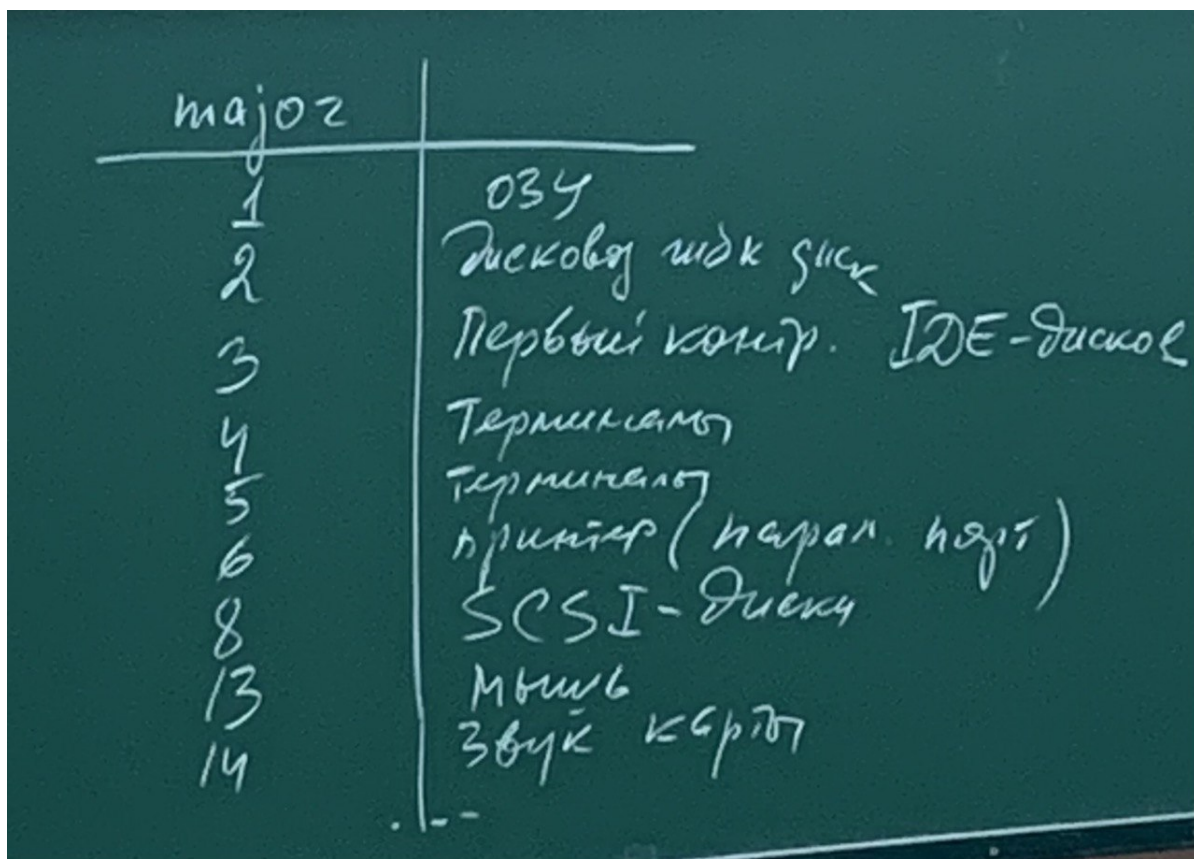 major
1 ОЗУ
2 Дисковод гибк диск
3 Первый контр. IDE-дисков
4 Терминалы
5 терминалы
6 принтер (парал. порт)
8 SCSI-диски
13 Мышь
14 Звук карты
...